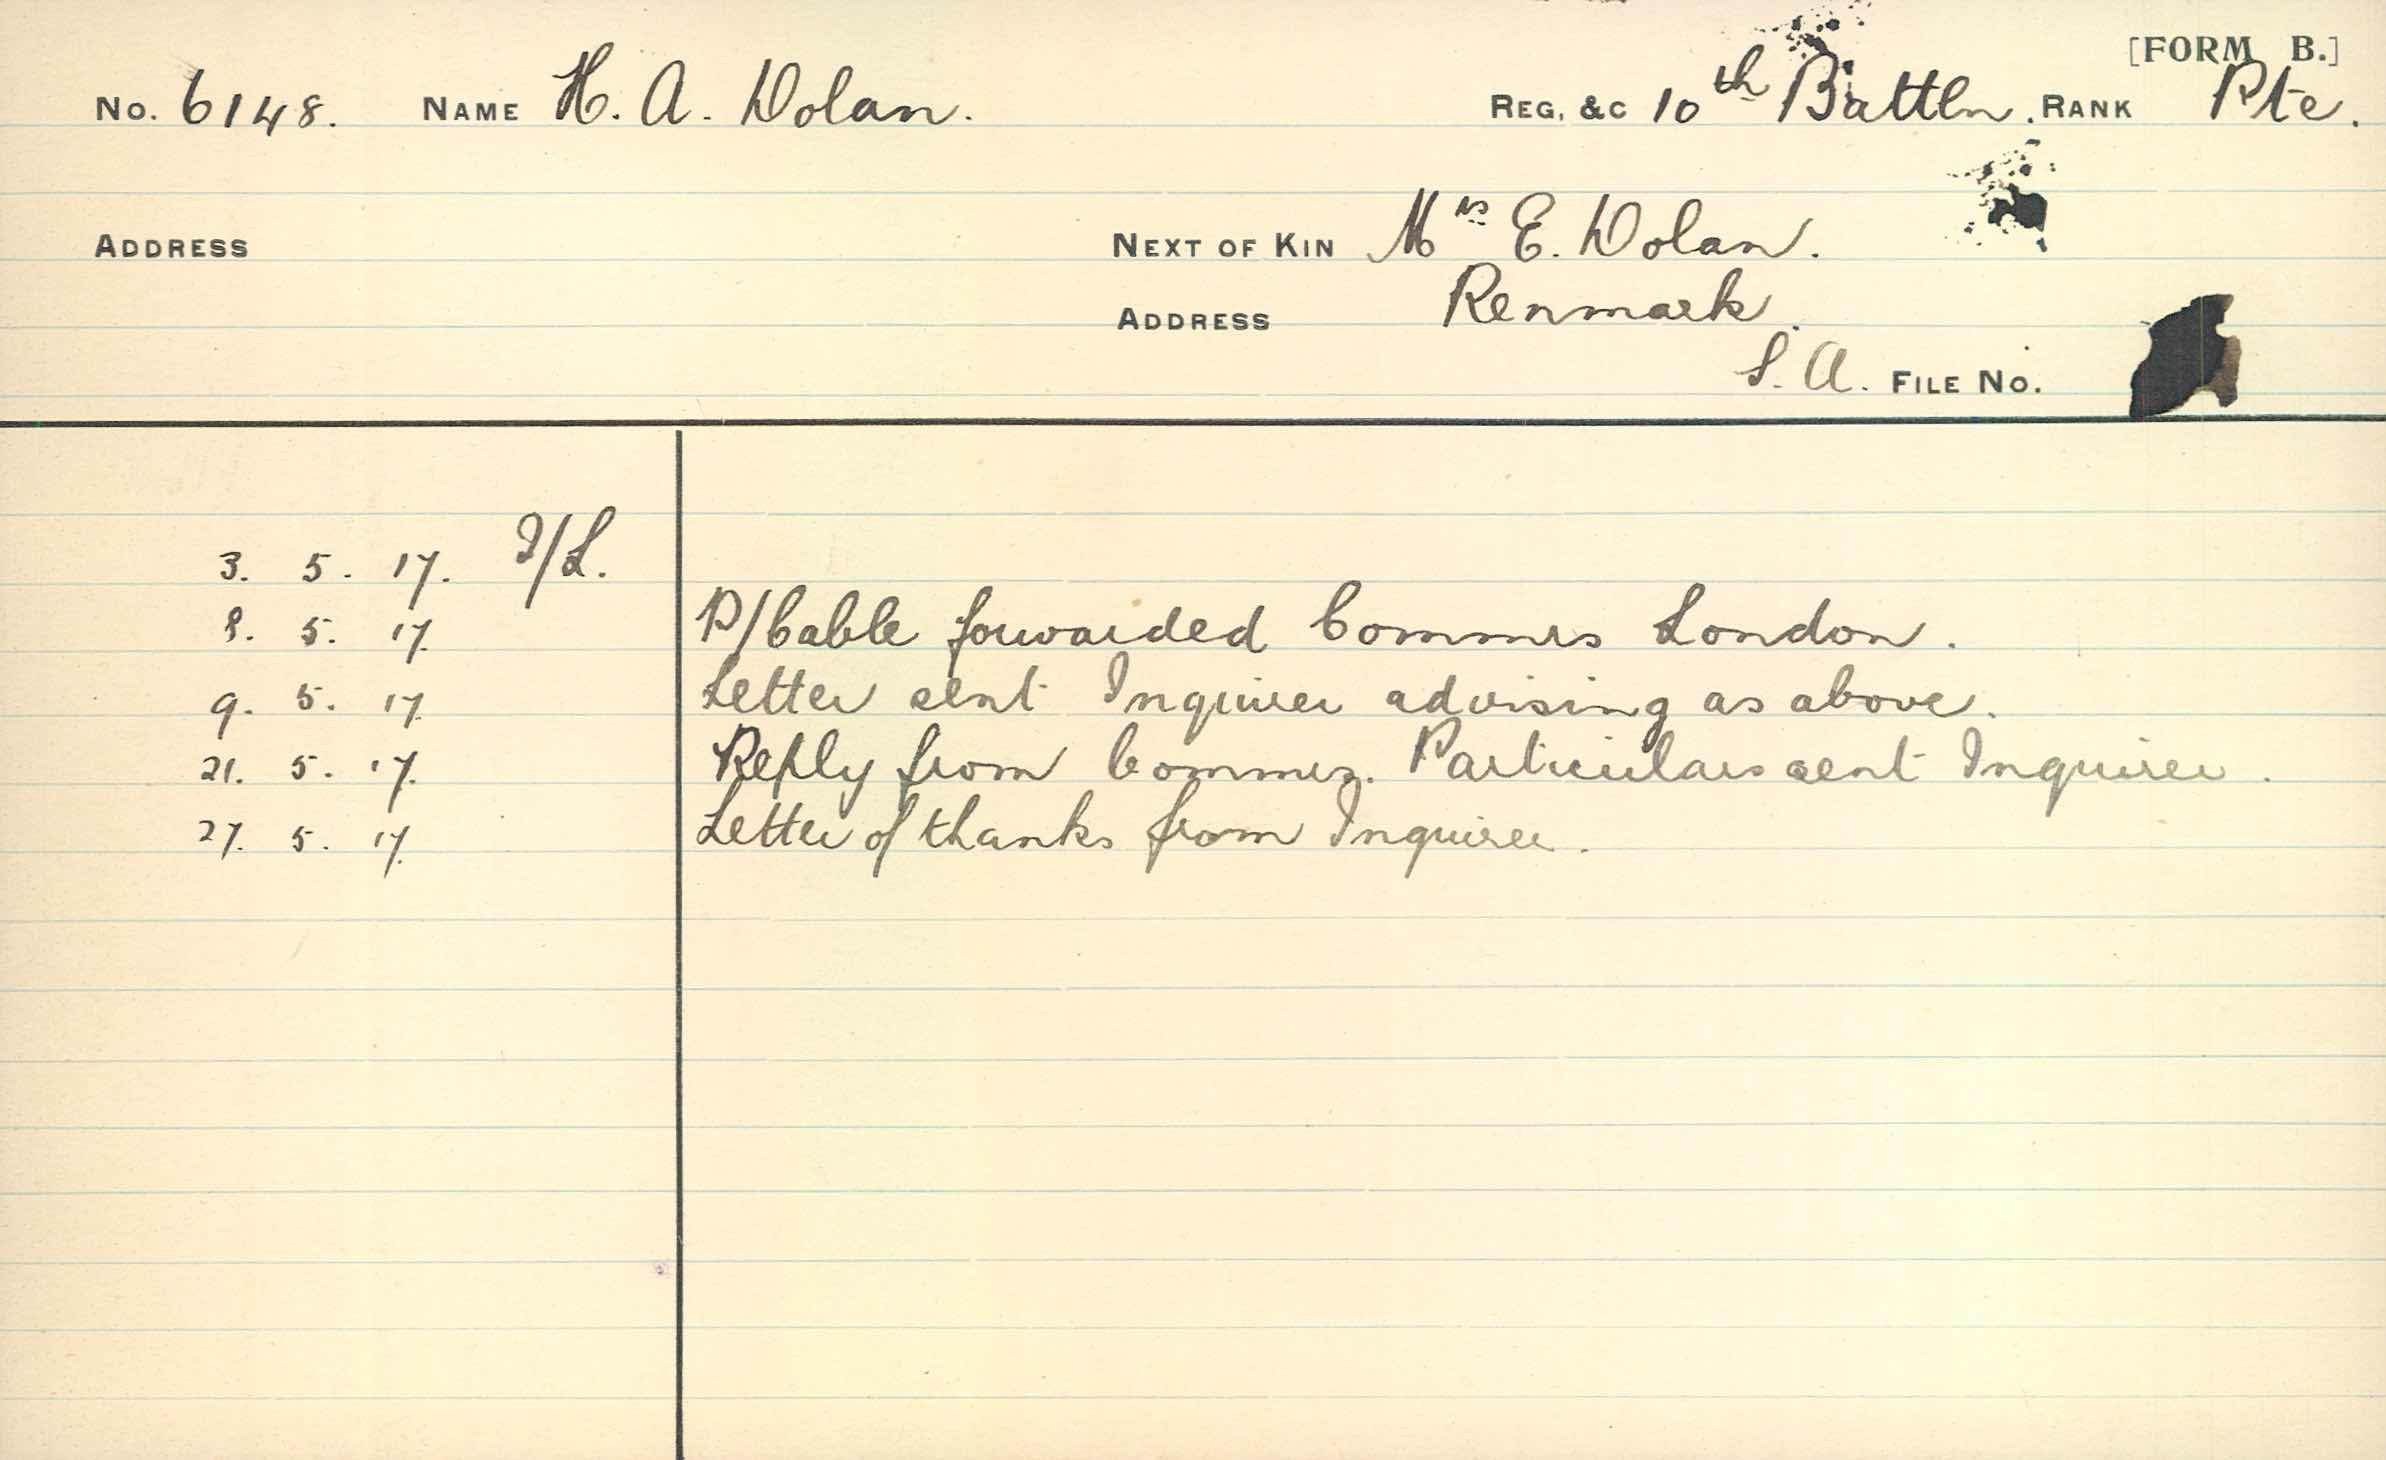 [FORM B.]
No. 6148. NAME H. A. Dolan. REG. &C 10th Battln. RANK Pte.
ADDRESS NEXT OF KIN Mrs E. Dolan.
ADDRESS Renmark.
S. A. FILE No.
3. 5. 17. I/L.
8. 5. 17. P/Cable forwarded Commrs London.
9. 5. 17. Letter sent Inquirer advising as above.
21. 5. 17. Reply from Commrs. Particulars sent Inquirer.
27. 5. 17. Letter of thanks from Inquirer.